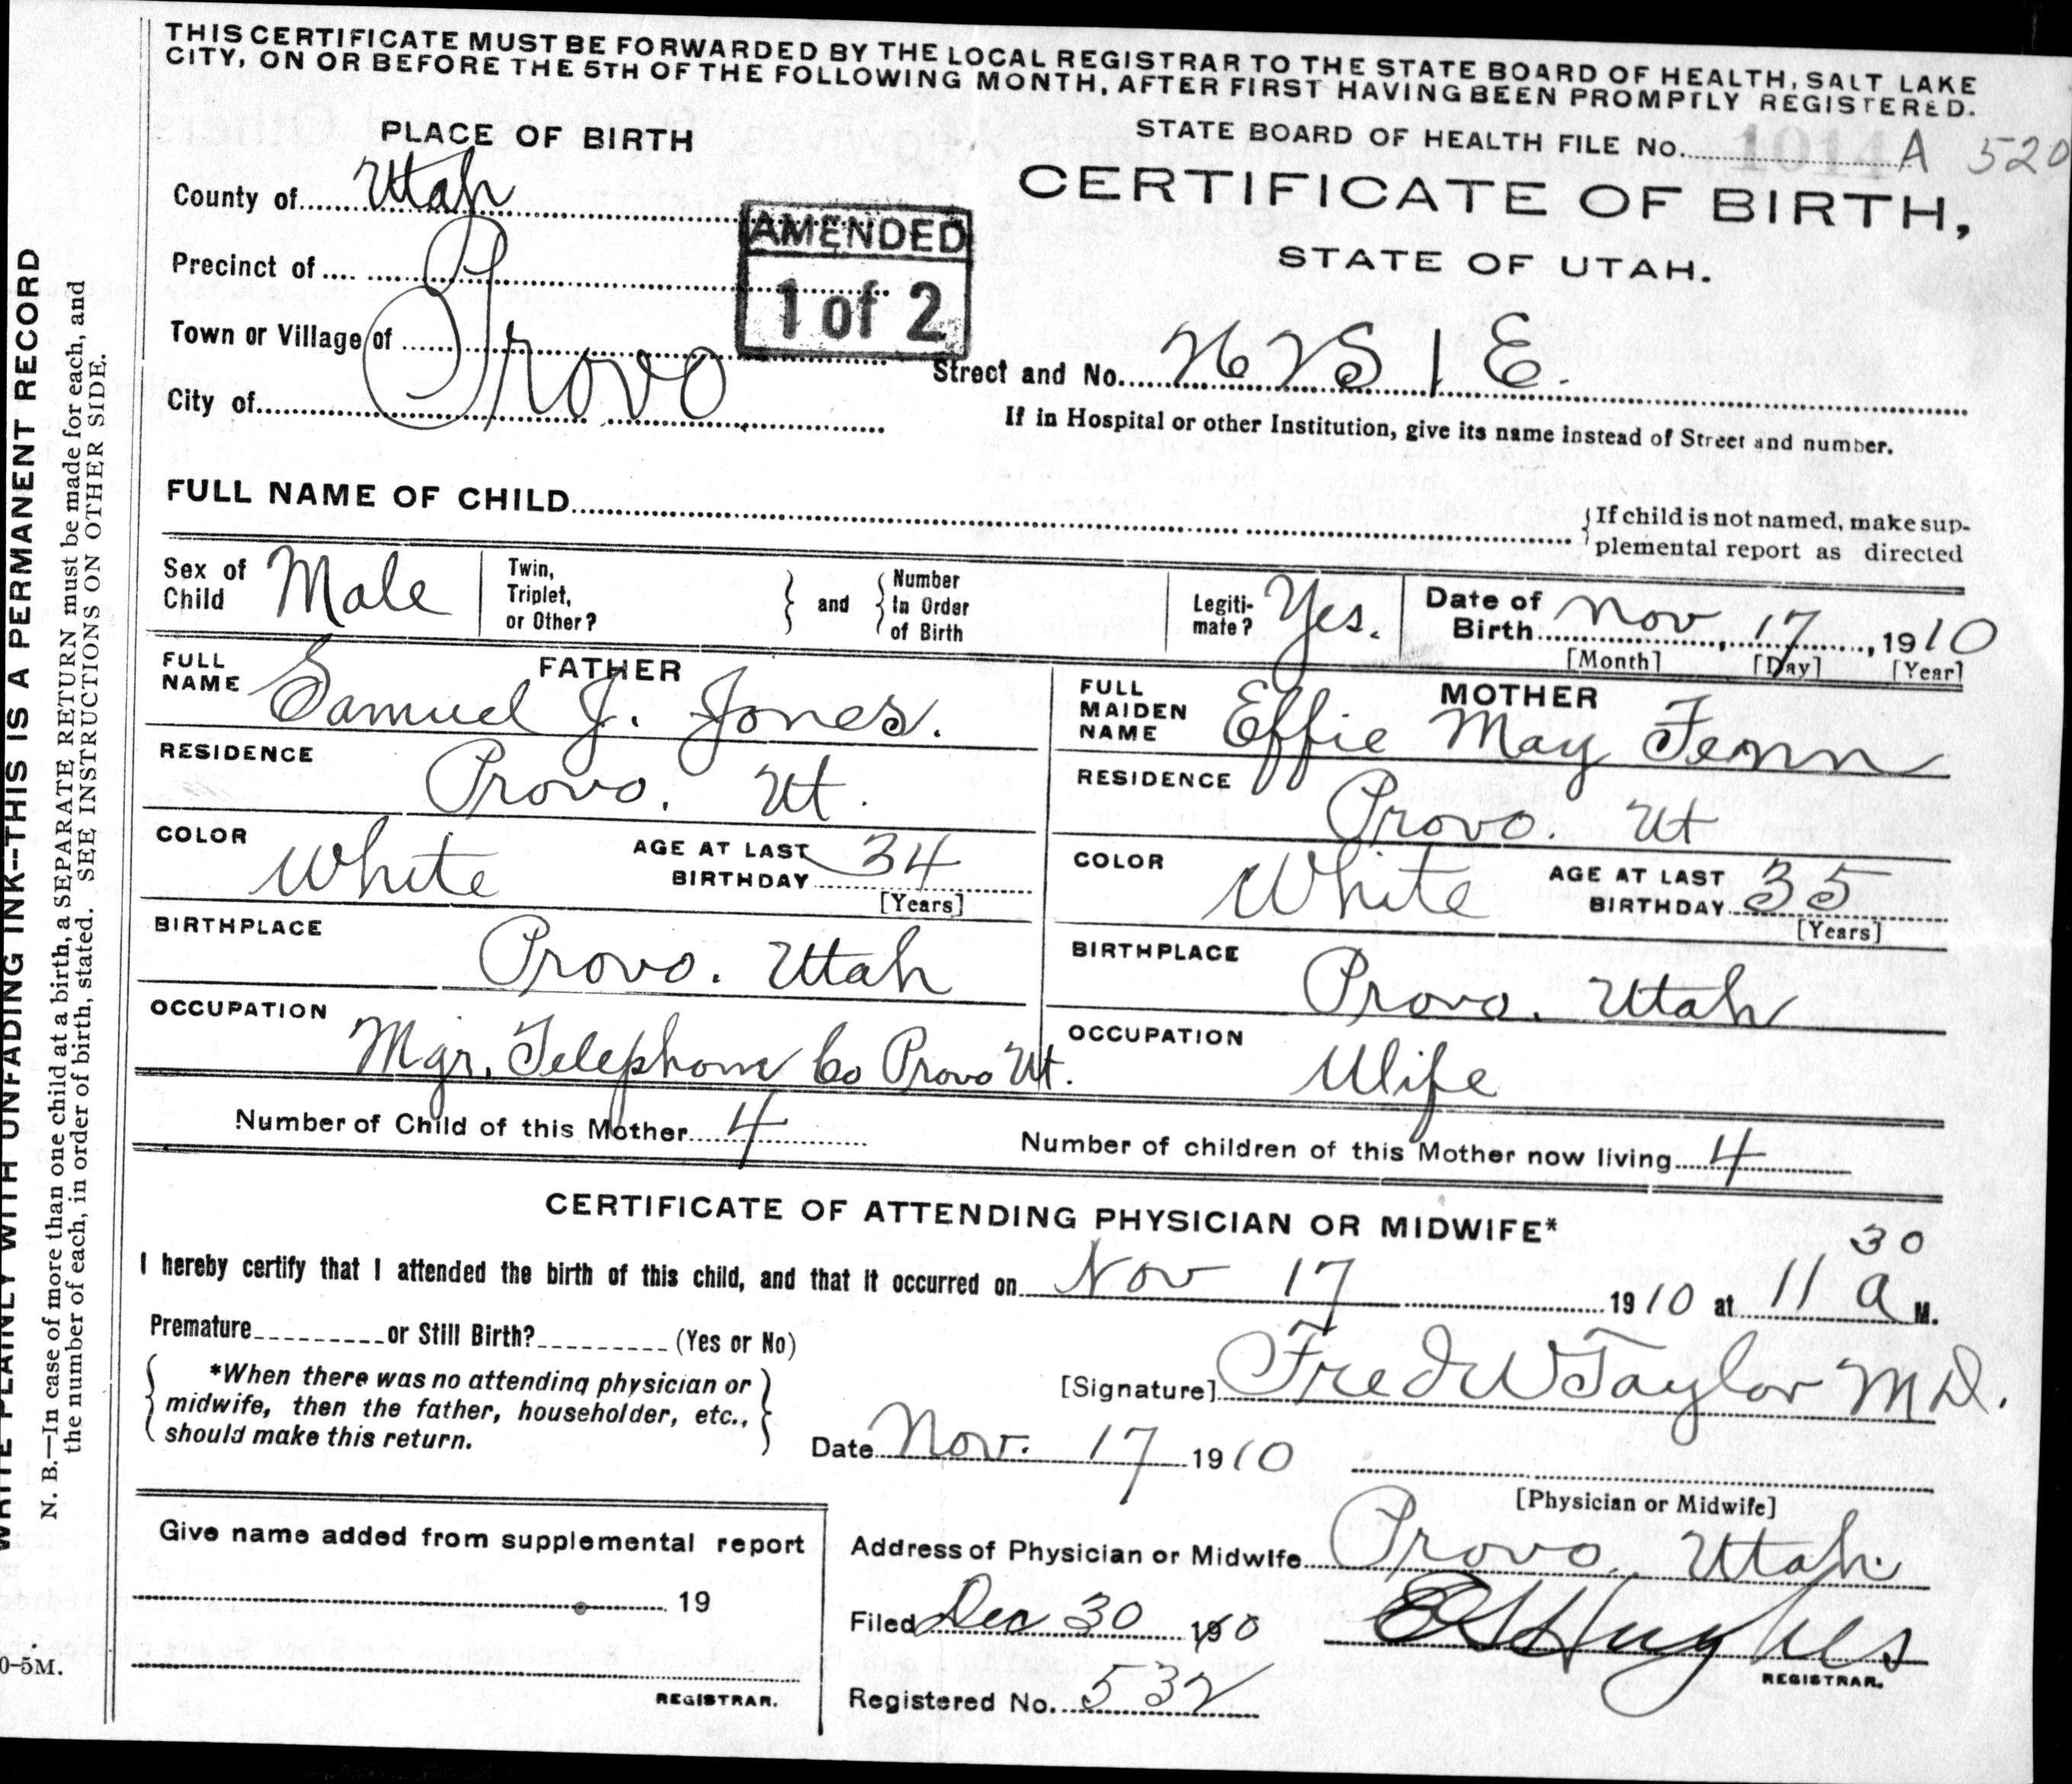 THIS CERTIFICATE MUST BE FORWARDED BY THE LOCAL REGISTRAR TO THE STATE BOARD OF HEALTH, SALT LAKE
CITY, ON OR BEFORE THE 5TH OF THE FOLLOWING MONTH, AFTER FIRST HAVING BEEN PROMPTLY REGISTERED.
PLACE OF BIRTH
STATE BOARD OF HEALTH FILE No. 1014 A 520
County of Utah
CERTIFICATE OF BIRTH,
STATE OF UTAH.
AMENDED
1 of 2
Precinct of
Town or Village of
City of Provo
Street and No. 1 E.
If in Hospital or other Institution, give its name instead of Street and number.
FULL NAME OF CHILD
If child is not named, make sup-
plemental report as directed
Sex of Child Male
Twin, Triplet, or Other?
and
Number in Order of Birth
Legiti-mate? Yes.
Date of Birth Nov 17, 1910
[Month] [Day] [Year]
FATHER
FULL NAME Samuel J. Jones.
RESIDENCE Provo. Ut.
COLOR White
AGE AT LAST BIRTHDAY 34
[Years]
BIRTHPLACE Provo. Utah
OCCUPATION Mgr. Telephone Co Provo Ut.
MOTHER
FULL MAIDEN NAME Effie May Fenn
RESIDENCE Provo. Ut
COLOR White
AGE AT LAST BIRTHDAY 35
[Years]
BIRTHPLACE Provo. Utah
OCCUPATION Wife
Number of Child of this Mother 4
Number of children of this Mother now living 4
CERTIFICATE OF ATTENDING PHYSICIAN OR MIDWIFE*
I hereby certify that I attended the birth of this child, and that it occurred on Nov 17 1910 at 11 30 a M.
Premature or Still Birth? (Yes or No)
*When there was no attending physician or
midwife, then the father, householder, etc.,
should make this return.
[Signature] Fred W Taylor M D.
Date Nov. 17 1910
[Physician or Midwife]
Give name added from supplemental report
19
REGISTRAR.
Address of Physician or Midwife Provo. Utah.
Filed Dec 30 1910
Hughes
REGISTRAR.
Registered No. 532
WRITE PLAINLY WITH UNFADING INK--THIS IS A PERMANENT RECORD
N. B.—In case of more than one child at a birth, a SEPARATE RETURN must be made for each, and
the number of each, in order of birth, stated. SEE INSTRUCTIONS ON OTHER SIDE.
0-5M.